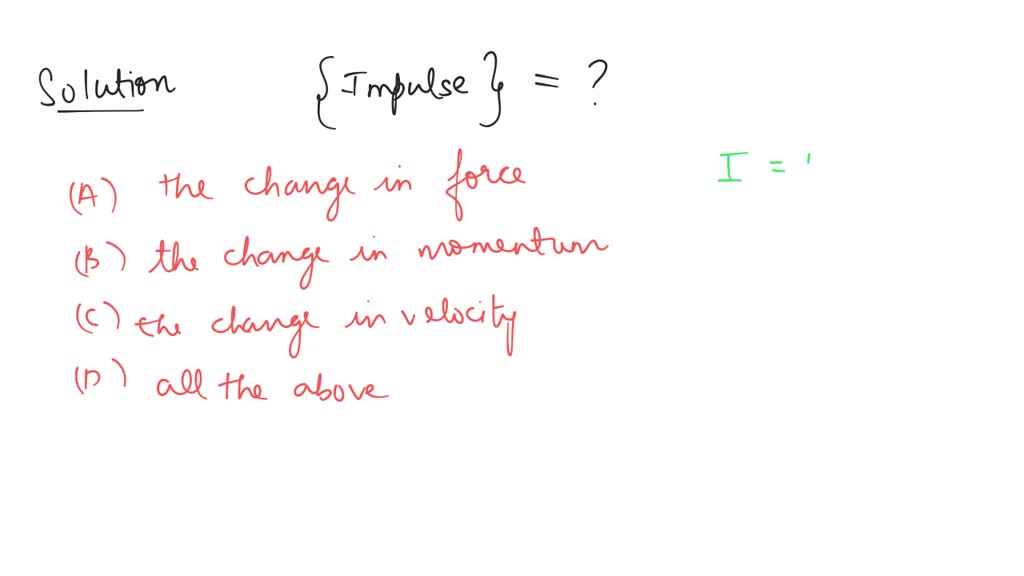 Solution {Impulse} = ?
(A) the change in force
I = '
(B) the change in momentum
(C) the change in velocity
(D) all the above